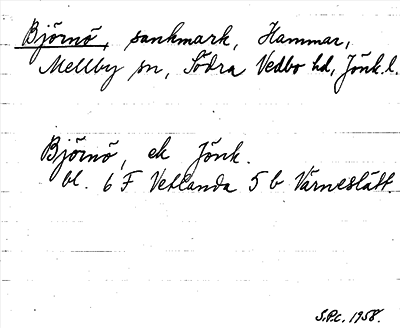 Björnö, sankmark, Hammar,
Mellby sn, Södra Vedbo hd, Jönk. l.
Björnö, ek Jönk.
bl. 6 F Vetlanda 5 b Värneslätt.
S.P.c. 1958.